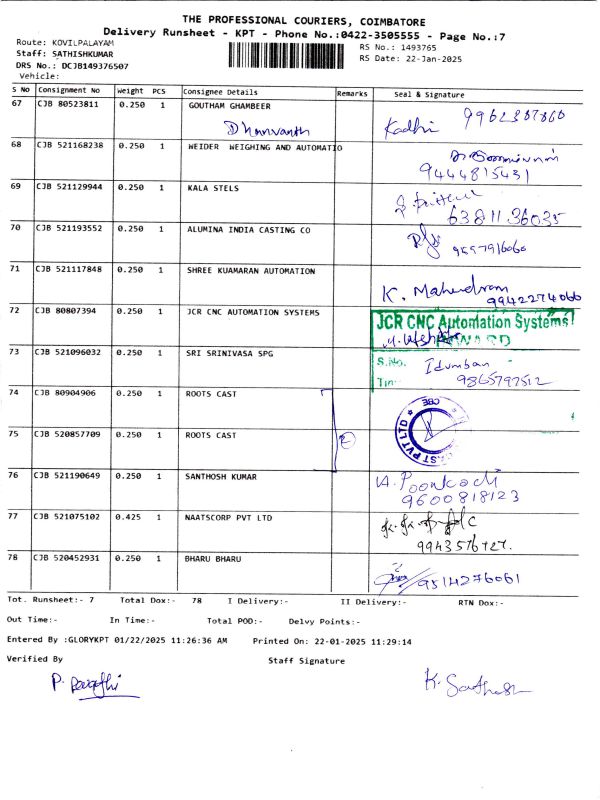 THE PROFESSIONAL COURIERS, COIMBATORE
Delivery Runsheet - KPT - Phone No.:0422-3505555 - Page No.:7
Route: KOVILPALAYAM
RS No.: 1493765
Staff: SATHISHKUMAR
RS Date: 22-Jan-2025
DRS No.: DCJB149376507
Vehicle:
S No Consignment No Weight PCS Consignee Details Remarks Seal & Signature
67 CJB 80523811 0.250 1 GOUTHAM GHAMBEER
Dhanvanth Kadhi
68 CJB 521168238 0.250 1 WEIDER WEIGHING AND AUTOMATIO
9444815431
69 CJB 521129944 0.250 1 KALA STELS
63811 36035
70 CJB 521193552 0.250 1 ALUMINA INDIA CASTING CO
9597916060
71 CJB 521117848 0.250 1 SHREE KUAMARAN AUTOMATION
K. Mahendran
9942274066
72 CJB 80807394 0.250 1 JCR CNC AUTOMATION SYSTEMS
JCR CNC Automation Systems
73 CJB 521096032 0.250 1 SRI SRINIVASA SPG
S.No. Idumban
9865797512
74 CJB 80904906 0.250 1 ROOTS CAST
CBE
75 CJB 520857709 0.250 1 ROOTS CAST
2
CAST PVT LTD
76 CJB 521190649 0.250 1 SANTHOSH KUMAR
A. Poonkodi
9600818123
77 CJB 521075102 0.425 1 NAATSCORP PVT LTD
9943576727.
78 CJB 520452931 0.250 1 BHARU BHARU
9514276061
Tot. Runsheet:- 7 Total Dox:- 78 I Delivery:- II Delivery:- RTN Dox:-
Out Time:- In Time:- Total POD:- Delvy Points:-
Entered By :GLORYKPT 01/22/2025 11:26:36 AM Printed On: 22-01-2025 11:29:14
Verified By Staff Signature